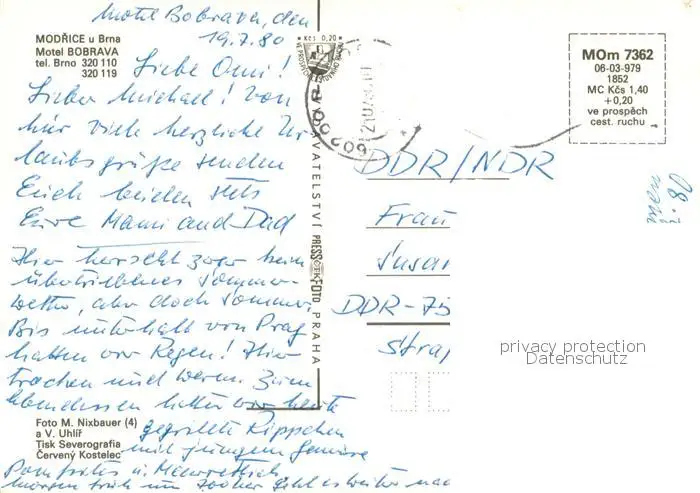 Motel Bobrava, den
19.7.80
MODŘICE u Brna
Motel BOBRAVA
tel. Brno 320 110
320 119
Liebe Omi!
Lieber Michael! Von
hier viele herzliche Ur-
laubsgrüße senden
Euch beiden stets
Eure Mami and Dad
Hier herrscht zwar kein
übertriebenes Sommer-
wetter, aber doch Sommer.
Bis unterhalb von Prag
hatten wir Regen! Hier
trocken und warm. Zum
Abendessen hatten wir heute
gegrillte Rippchen
mit jungem Gemüse
Pomfrites u.
morgen früh um geht es weiter nach
Foto M. Nixbauer (4)
a V. Uhlíř
Tisk Severografia
Červený Kostelec
Kčs 0,20
VE PROSPĚCH CESTOVNÍHO RUCHU
VYDAVATELSTVÍ PRESSFOTO PRAHA
MOm 7362
06-03-979
1852
MC Kčs 1,40
+0,20
ve prospěch
cest. ruchu
DDR/NDR
Frau
Susan
DDR-75
Straß
privacy protection
Datenschutz